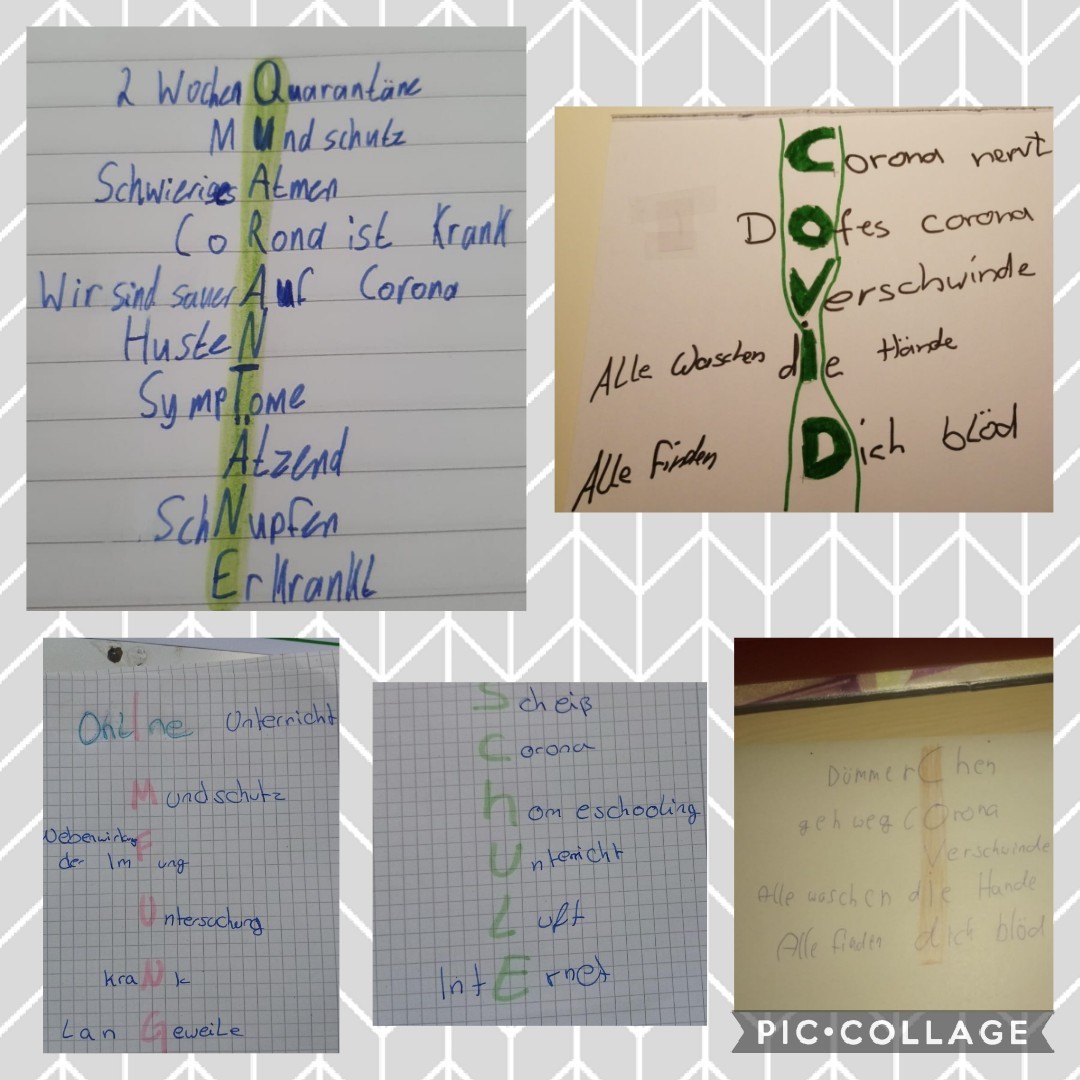 2 Wochen Quarantäne
MUndschutz
Schwieriges Atmen
CoRona ist Krank
Wir sind sauer Auf Corona
HusteN
SympTome
Ätzend
SchNupfen
ErKrankt
Corona nervt
Dofes corona
Verschwinde
Alle Waschen die Hände
Alle finden Dich blöd
OnLIne Unterricht
Mundschutz
Nebenwirkung
der ImFung
Untersuchung
KraNk
LanGeweiLe
Scheiß
Corona
homeschooling
Unterricht
Luft
IntErnet
DümmerChen
geh weg COrona
Verschwinde
Alle waschen die Hände
Alle finden dich blöd
PIC•COLLAGE